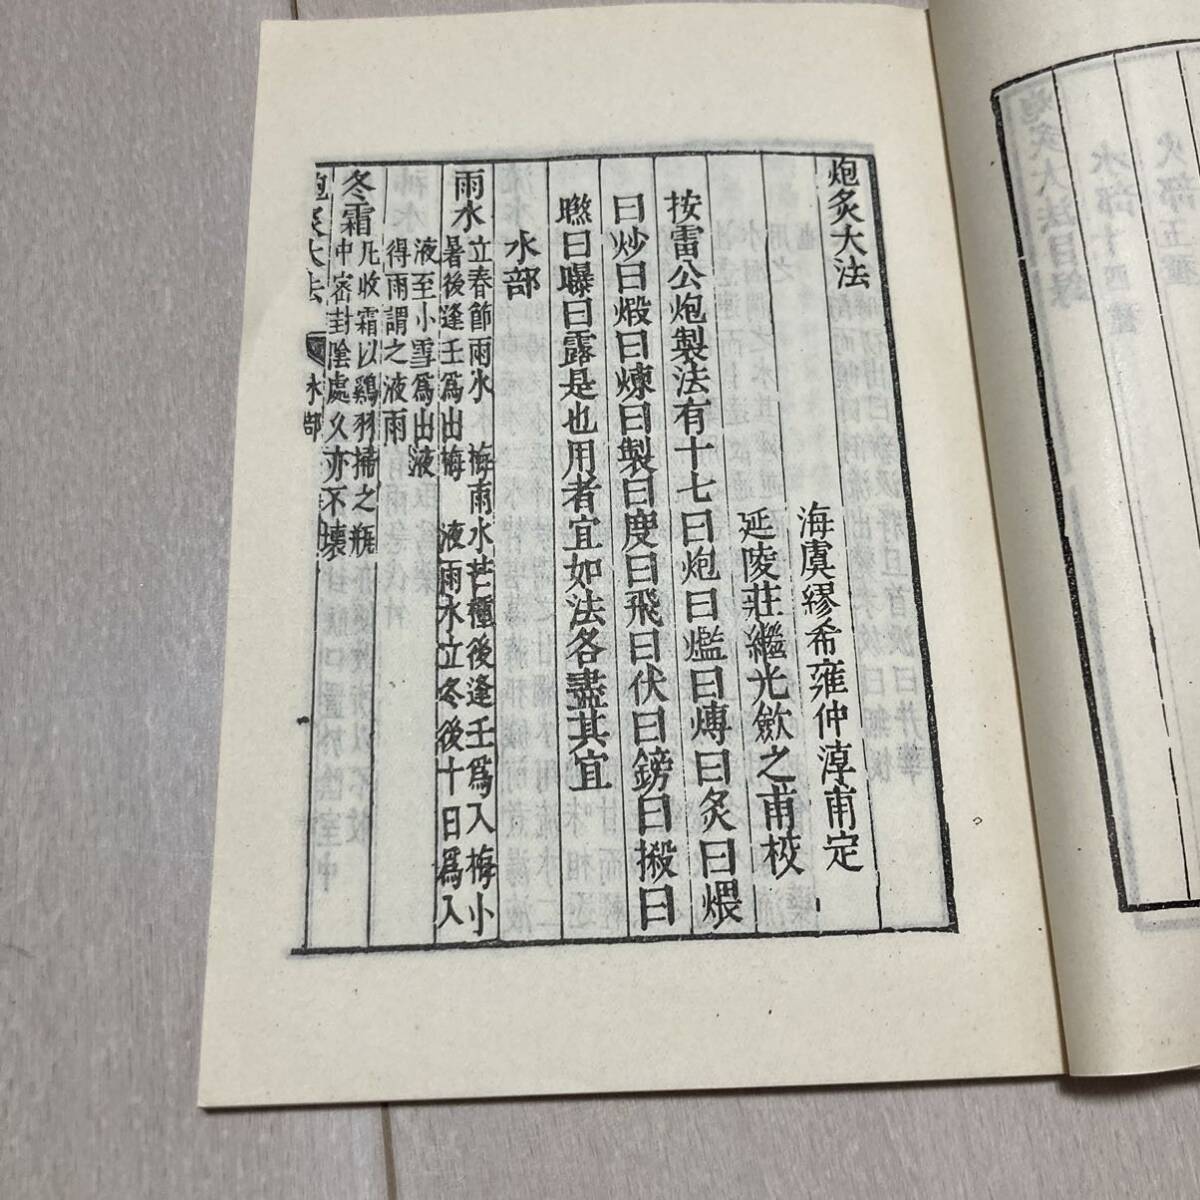 炮炙大法
海虞繆希雍仲淳甫定
延陵莊繼光歛之甫校
按雷公炮製法有十七曰炮曰爁曰煿曰炙曰煨
曰炒曰煅曰煉曰製曰度曰飛曰伏曰鎊曰摋曰
㬠曰曝曰露是也用者宜如法各盡其宜
水部
雨水
立春節雨水 梅雨水芒種後逢壬爲入梅小
暑後逢壬爲出梅 液雨水立冬後十日爲入
液至小雪爲出液
得雨謂之液雨
冬霜
凡收霜以鷄羽掃之瓶
中密封陰處久亦不壞
炮炙大法 水部
炮炙大法目錄
水部十四種
火部五種